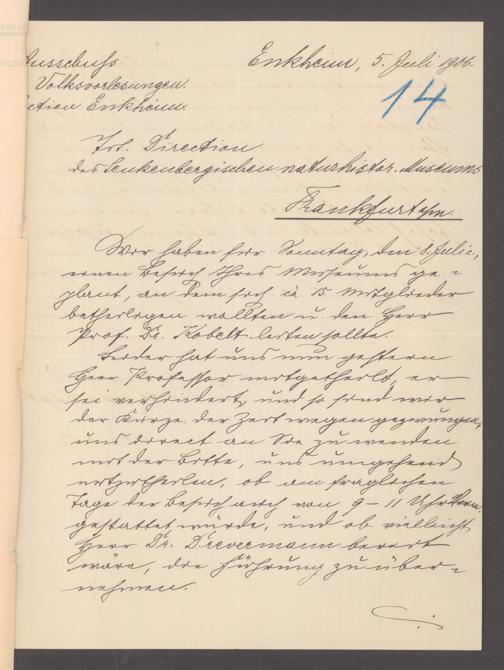 Ausschuss
Volksvorlesungen.
ction Enkheim.
Enkheim, 5. Juli 1906.
14
Tit. Direction
des Senkenbergischen naturhistor. Museums
Frankfurt a/m.
Wir haben für Sonntag, den 8. Julie,
einen Besuch Ihres Museums ge-
plant, an dem sich ca 15 Mitglieder
betheiligen wollten u. den Herr
Prof. Dr. Kobelt leiten sollte.
Leider hat uns nun gestern
Herr Professor mitgetheilt, er
sei verhindert, und so sind wir
der Kürze der Zeit wegen gezwungen,
uns direct an Sie zu wenden
mit der Bitte, uns umgehend
mitzutheilen, ob am fraglichen
Tage der Besuch auch von 9 – 11 Uhr Vorm.
gestattet würde, und ob vielleicht
Herr Dr. Drevermann bereit
wäre, die Führung zu über-
nehmen.